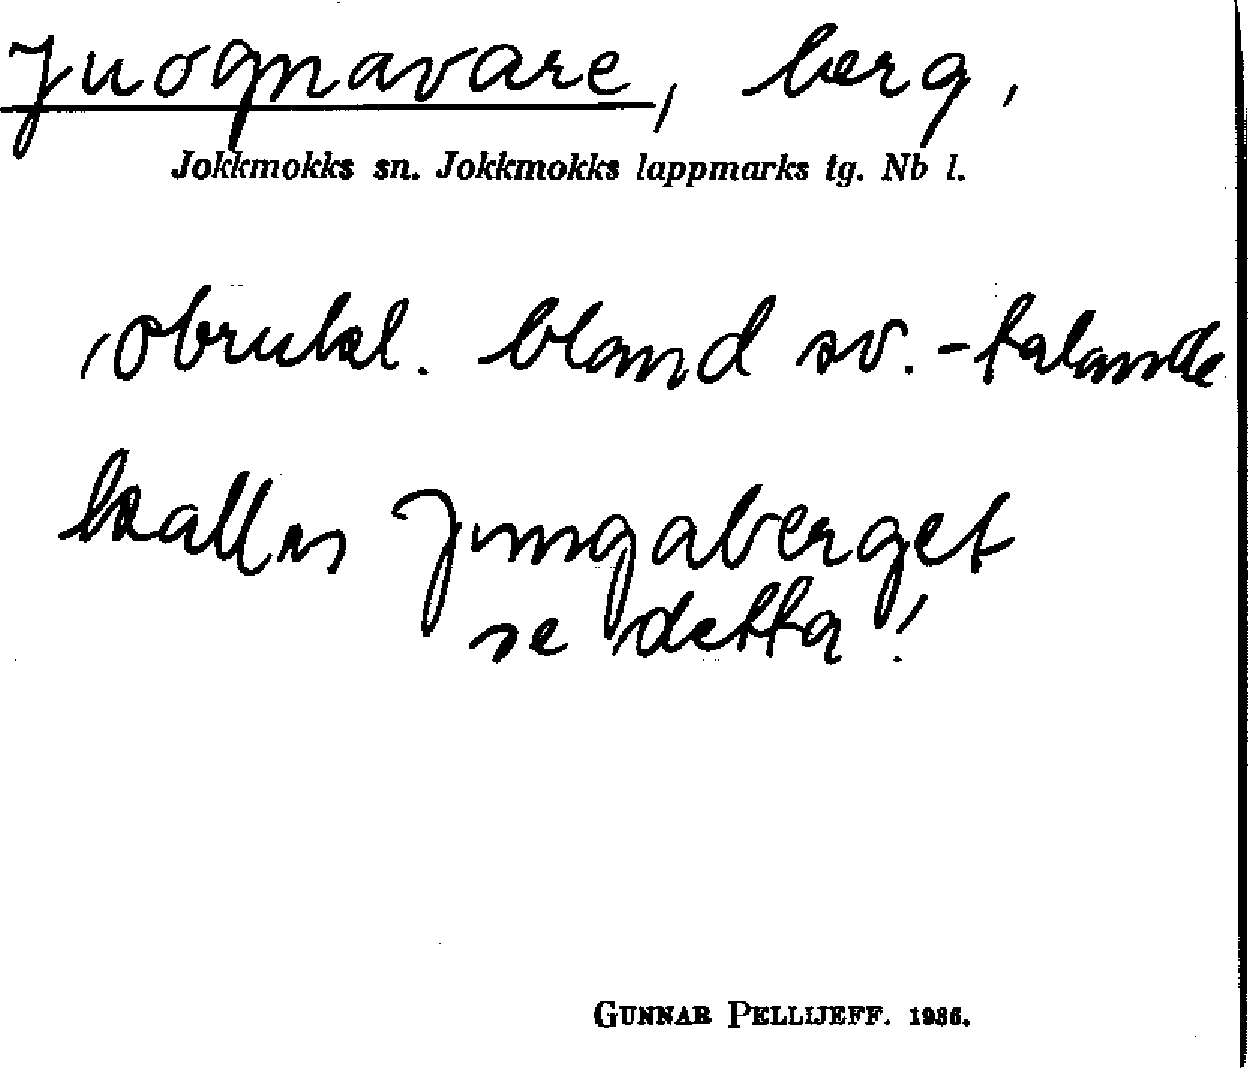 Juognavare, berg,
Jokkmokks sn. Jokkmokks lappmarks tg. Nb l.
obrukl. bland sv.-talande
kallas Jungaberget
se detta!
GUNNAR PELLIJEFF. 1936.